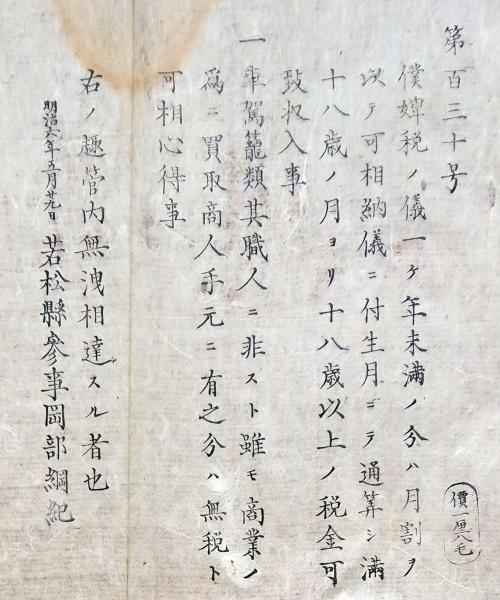 第百三十号
僕婢税ノ儀一ケ年未満ノ分ハ月割ヲ
以テ可相納儀ニ付生月ニテ通算シ満
十八歳ノ月ヨリ十八歳以上ノ税金可
致収入事
一車駕籠類其職人ニ非スト雖モ商業ノ
為ニ買取商人手元ニ有之分ハ無税ト
可相心得事
右ノ趣管内無洩相達スル者也
明治六年五月廿九日 若松縣參事岡部綱紀
價一厘八毛